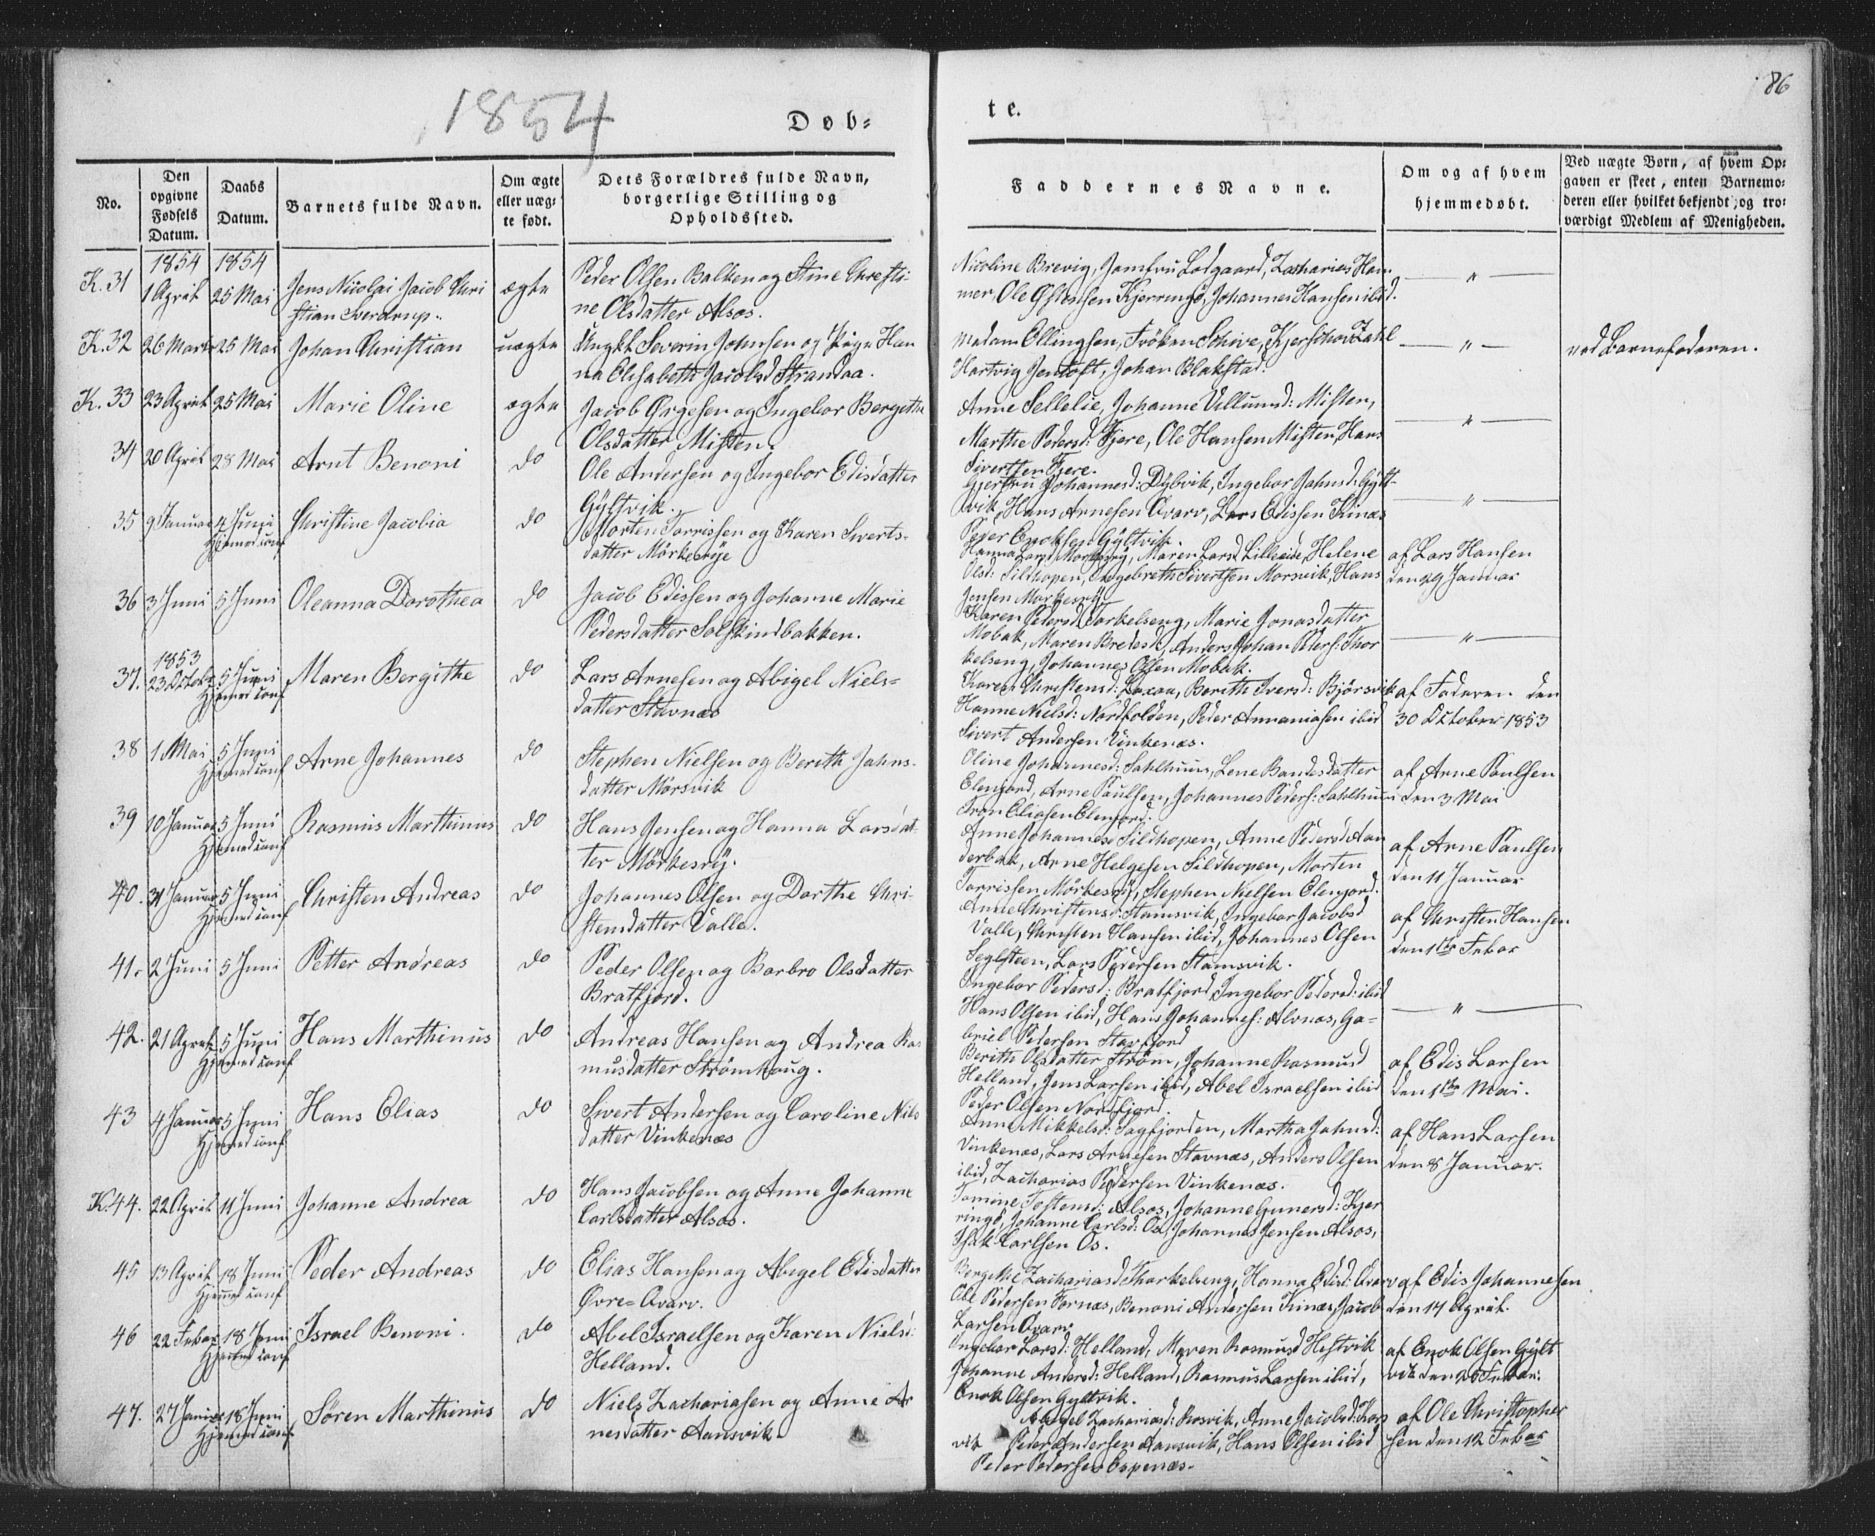 86
1854
Døb-
te.
No.
Den opgivne Fødsels Datum.
Daabs Datum.
Barnets fulde Navn.
Om ægte eller uægte født.
Dets Forældres fulde Navn, borgerlige Stilling og Opholdssted.
Faddernes Navne.
Om og af hvem hjemmedøbt.
Ved uægte Børn, af hvem Opgaven er skeet, enten Barnemoderen eller hvilket bekjendt, og troværdigt Medlem af Menigheden.
1854 1854
K. 31 1 April 25 Mai Jens Nicolai Jacob Chri
stian Sverdrup.
ægte
Peder Olsen Balken og Stine Christi
ne Olsdatter Alsos.
Nicoline Brevig, Jomfru Lodgaard, Zacharias Ham
mer, Ole Kjerringø, Johannes Hansen ibid.
— " —
K. 32 26 Marts 25 Mai Johan Christian
uægte
Ungkl Severin Johnsen og Pige Han
na Elisabeth Jacobsd Strandaa.
Madam Ellingsen, Frøken Schive, Kjerschow Zahl
Hartvig Jentoft, Johan Blakstad.
— " —
ved Barnefaderen.
K. 33 23 April 25 Mai Marie Oline
ægte
Jacob Ørgesen og Ingebor Bergithe
Olsdatter Misten.
Anne Sellelie, Johanne Villumsd: Misten,
Marthe Pedersd: Fjere, Ole Hansen Misten, Hans
Sivertsen Fjere.
— " —
34 20 April 28 Mai Arnt Benoni
do
Ole Andersen og Ingebor Edisdatter
Gyltvik.
Gjertru Johannesd: Dybvik, Ingebor Johnsd: Gylt-
vik, Hans Arnesen Qvarv, Lars Edissen Kinæs
Peder Enoksen Gyltvik.
— " —
35 9 Januar 4 Juni Christine Jacobia
Hjemmed conf
do
Morten Torrissen og Karen Siverts-
datter Mørkesrye
Hanna Larsd Mørkesrøj, Maren Larsd Lilleeide, Helene
Olsd: Sildhopen, Ingebreth Sivertsen Morsvik, Hans
Jensen Mørkesrøj
af Lars Hansen
den 29 Januar
36 3 Juni 5 Juni Oleanna Dorothea
do
Jacob Edissen og Johanne Marie
Pedersdatter Solskindbakken.
Karen Pedersd Torkelseng, Marie Jonasdatter
Mobak, Maren Bredesd, Anders Johan Peders: Thor
kelseng, Johannes Olsen Mobak.
— " —
1853
37. 23 Octobr 5 Juni Maren Bergithe
Hjemmed conf
do
Lars Arnesen og Abigel Niels-
datter Stavnæs
Karen Christensd: Laxaa, Berith Iversd: Bjørsvik
Hanne Nielsd: Nordfolden, Peder Annaniasen ibid
Sivert Andersen Vinkenæs.
af Faderen den
30 Oktober 1853
38 1 Mai 5 Juni Arne Johannes
Hjemmed conf
do
Stephen Nielsen og Berith Jahns-
datter Mørsvik
Oline Johannesd: Sahlhuus, Lene Bandesdatter
Elenjord, Arne Paulsen, Johannes Peders: Sahlhuus
Tron Eliasen Elenjord.
af Arne Paulsen
den 3 Mai
39 10 Januar 5 Juni Rasmus Marthinus
Hjemmed conf
do
Hans Jensen og Hanna Larsdat-
ter Mørkesrøj.
Anne Johannesd Sildhopen, Anne Pedersd Aan
derbak, Arne Helgesen Sildhopen, Morten
Torrissen Mørkesrøj, Stephen Nielsen Elenjord.
af Arne Paulsen
den 11 Januar
40. 31 Januar 5 Juni Christen Andreas
Hjemmed conf
do
Johannes Olsen og Dorthe Chri-
stensdatter Valle.
Anne Christensd: Stamsvik, Ingebor Jacobsd
Valle, Christen Hansen ibid, Johannes Olsen
Seglsteen, Lars Pedersen Stamsvik.
af Christen Hansen
den 1ste Febar
41. 2 Juni 5 Juni Petter Andreas
do
Peder Olsen og Barbro Olsdatter
Bratfjord.
Ingebor Pedersd: Bratfjord, Ingebor Pedersd: ibid
Hans Olsen ibid, Hans Johannes: Alvnæs, Ga-
briel Pedersen Stavfjord
— " —
42. 21 April 5 Juni Hans Marthinus
Hjemmed conf
do
Andreas Hansen og Andrea Ras
musdatter Strømhaug.
Berith Olsdatter Strøm, Johanne Rasmusd
Helland, Jens Larsen ibid, Abel Israelsen ibid
Peder Olsen Nordfjord.
af Edis Larsen
den 1ste Mai.
43 4 Januar 5 Juni Hans Elias
Hjemmed conf
do
Sivert Andersen og Caroline Niels
datter Vinkenæs
Anne Mikkelsd: Sagfjorden, Martha Johnsd:
Vinkenæs, Lars Arnesen Stavnæs, Anders Olsen
ibid, Zacharias Pedersen Vinkenæs.
af Hans Larsen
den 8 Januar.
K. 44. 22 April 11 Juni Johanne Andrea
do
Hans Jacobsen og Anne Johanne
Carlsdatter Alsos.
Tomine Tostensd: Alsos, Johanne Gunersd: Kjer
ringø, Johanne Carlsd: Os, Johannes Jensen Alsos,
Isak Carlsen Os.
45 13 April 18 Juni Peder Andreas
Hjemmed conf
do
Elias Hansen og Abigel Edisdatter
Øvre-Qvarv.
Bergithe Zachariasd Thorkelseng, Hanna Edisd: Qvarv
Ole Pedersen Fornæs, Benoni Andersen Kinæs, Jacob
Larsen Qvarv
af Edis Johannesen
den 14 April.
46 22 Febar 18 Juni Israel Benoni.
Hjemmed conf
do
Abel Israelsen og Karen Nielsd:
Helland.
Ingebor Larsd: Helland, Maren Rasmusd Hestvik
Johanne Andersd: Helland, Rasmus Larsen ibid,
Enok Olsen Gyltvik.
af Enok Olsen Gylt
vik den 26 Febar.
47. 27 Januar 18 Juni Søren Marthinus
Hjemmed conf
do
Niels Zachariasen og Anne Ar
nesdatter Aansvik
Abigel Zachariasd: Rosvik, Anne Jacobsd: Kors
vik Peder Andersen Aansvik, Hans Olsen ibid
Peder Pedersen Espenæs.
af Ole Christopher
sen den 12 Febar